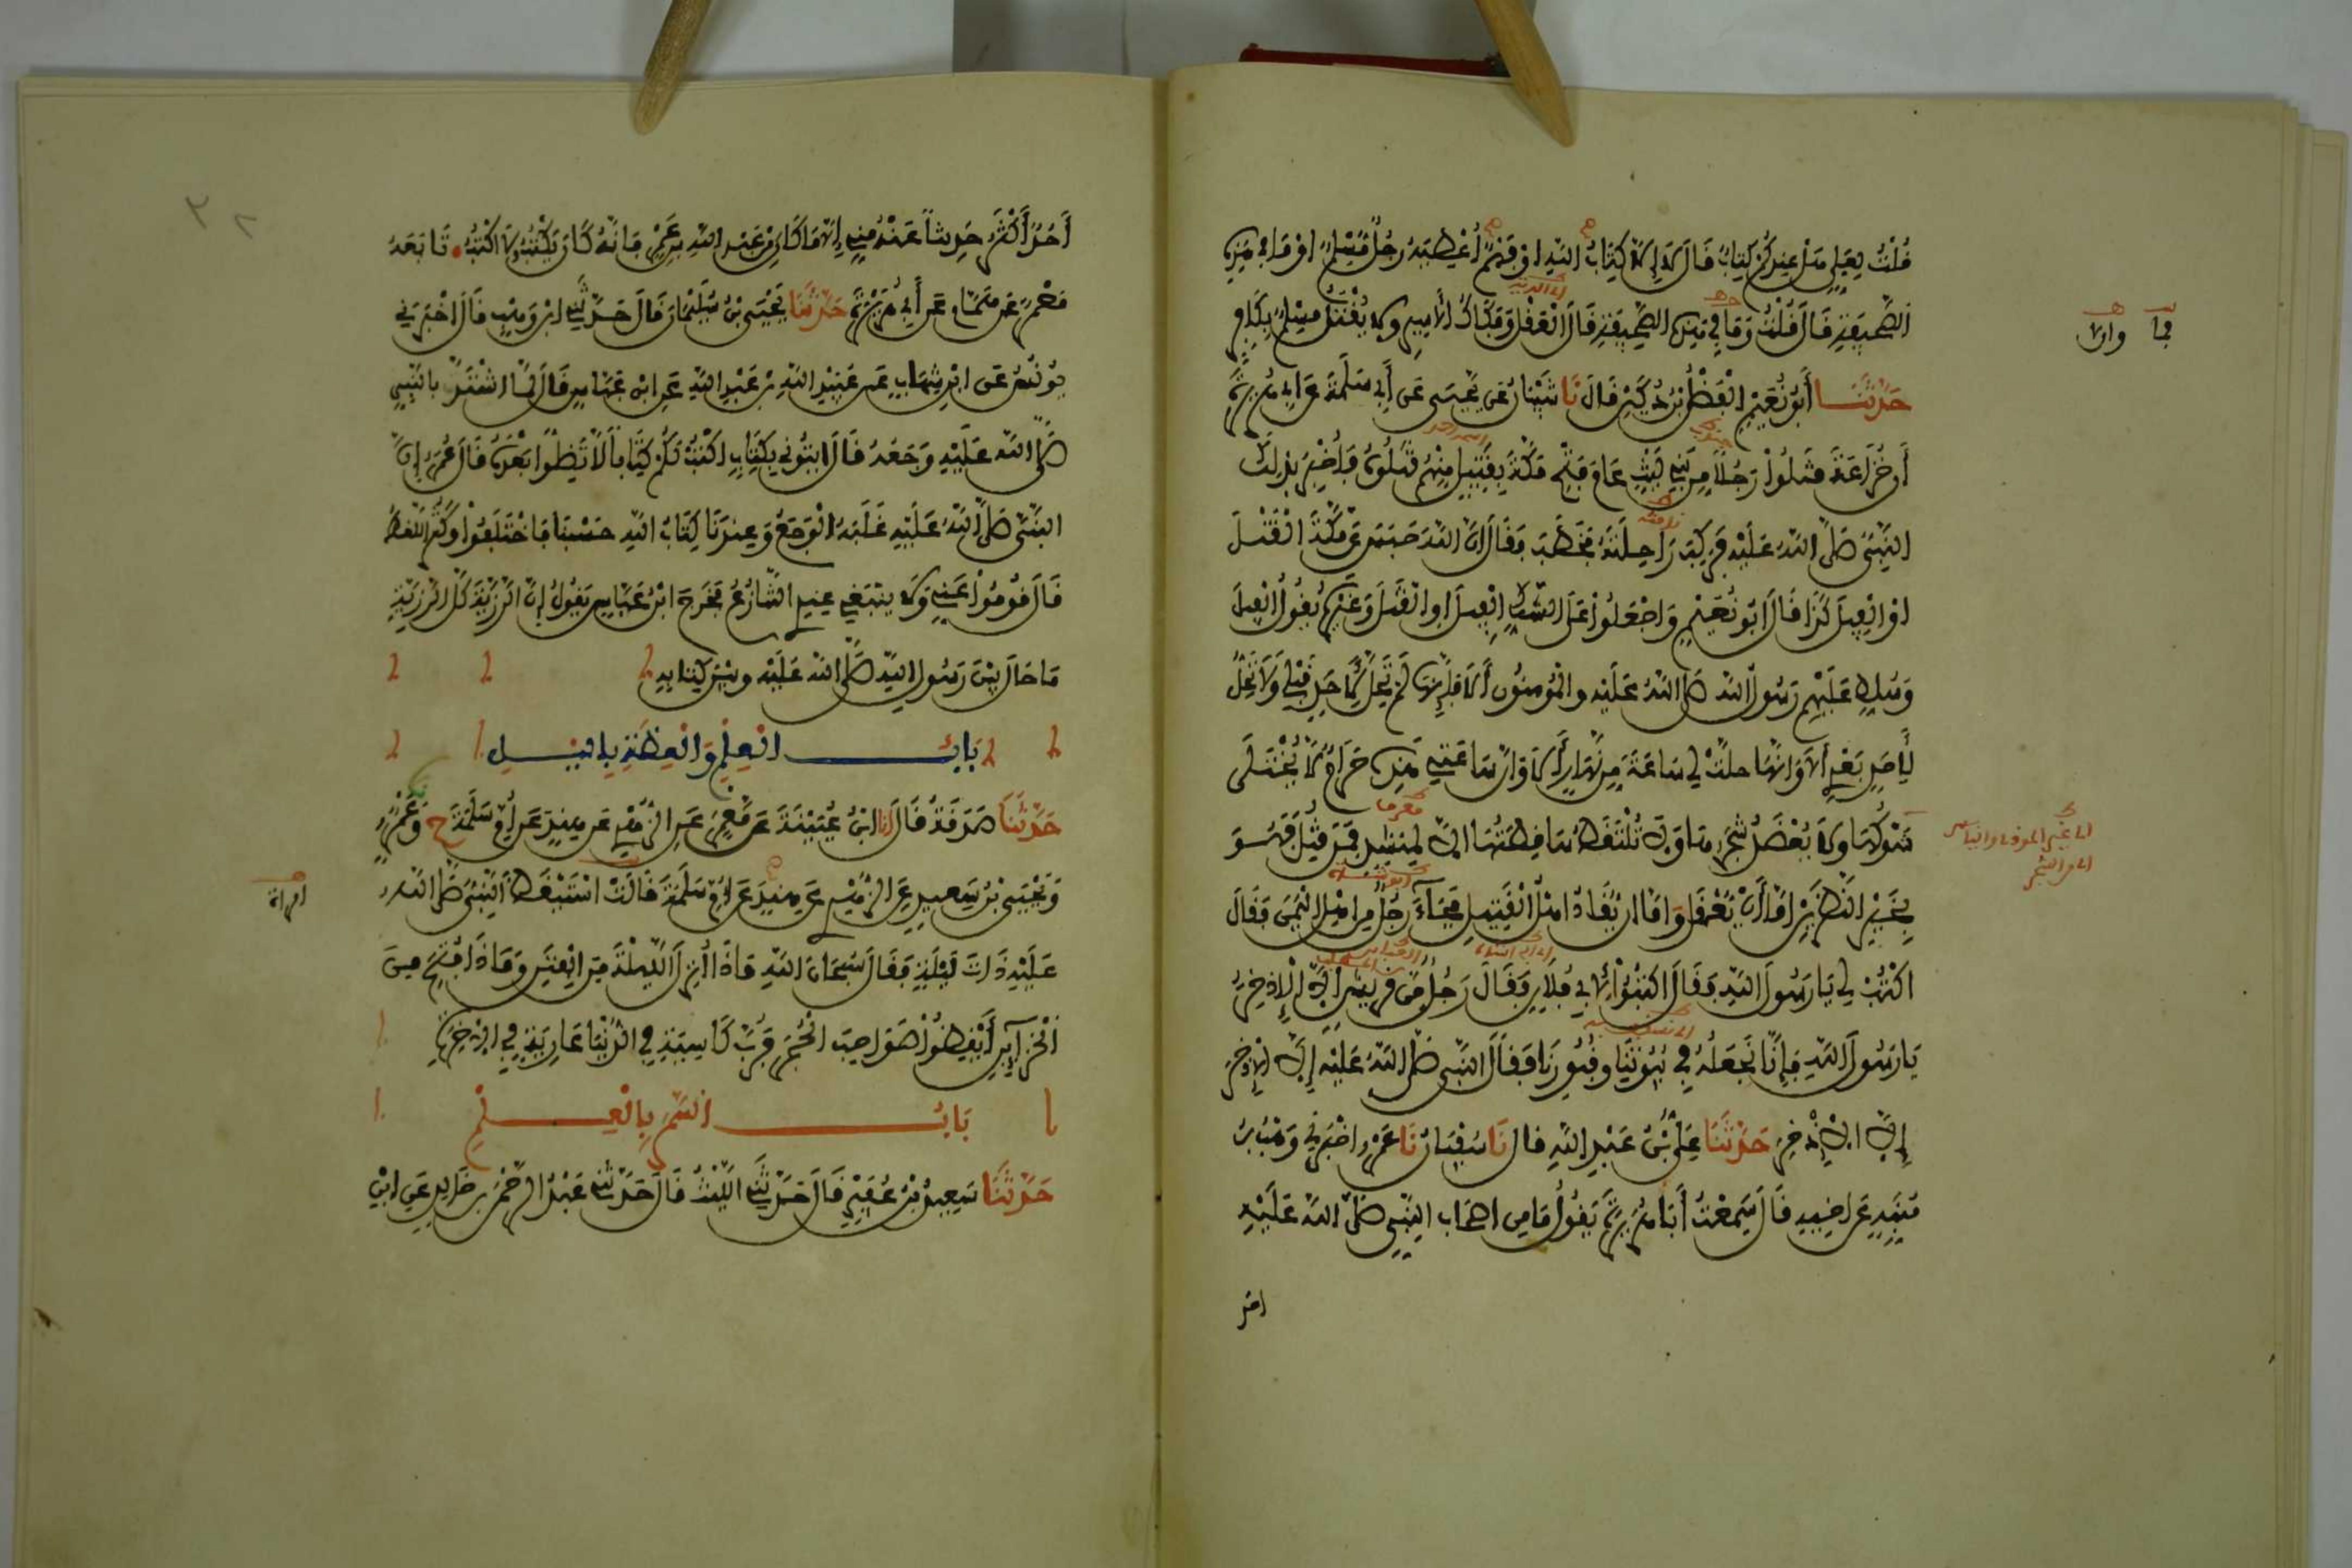 قُلْتُ لِعَلِيٍّ هَلْ عِنْدَكُمْ كِتَابٌ قَالَ لَا إِلَّا كِتَابُ اللَّهِ أَوْ فَهْمٌ أُعْطِيَهُ رَجُلٌ مُسْلِمٌ أَوْ مَا فِي هَذِهِ
الصَّحِيفَةِ قَالَ قُلْتُ وَمَا فِي هَذِهِ الصَّحِيفَةِ قَالَ الْعَقْلُ وَفَكَاكُ الْأَسِيرِ وَلَا يُقْتَلُ مُسْلِمٌ بِكَافِرٍ
حَدَّثَنَا أَبُو نُعَيْمٍ الْفَضْلُ بْنُ دُكَيْنٍ قَالَ نَا شَيْبَانُ عَنْ يَحْيَى عَنْ أَبِي سَلَمَةَ عَنْ أَبِي هُرَيْرَةَ
أَنَّ خُزَاعَةَ قَتَلُوا رَجُلًا مِنْ بَنِي لَيْثٍ عَامَ فَتْحِ مَكَّةَ بِقَتِيلٍ مِنْهُمْ قَتَلُوهُ فَأُخْبِرَ بِذَلِكَ
النَّبِيُّ صَلَّى اللَّهُ عَلَيْهِ فَرَكِبَ رَاحِلَتَهُ فَخَطَبَ فَقَالَ إِنَّ اللَّهَ حَبَسَ عَنْ مَكَّةَ الْقَتْلَ
أَوِ الْفِيلَ كَذَا قَالَ أَبُو نُعَيْمٍ وَاجْعَلُوا عَلَى الشَّكِّ الْفِيلَ أَوِ الْقَتْلَ وَغَيْرُهُ يَقُولُ الْفِيلَ
وَسُلِّطَ عَلَيْهِمْ رَسُولُ اللَّهِ صَلَّى اللَّهُ عَلَيْهِ وَالْمُؤْمِنُونَ أَلَا فَإِنَّهَا لَمْ تَحِلَّ لِأَحَدٍ قَبْلِي وَلَا تَحِلُّ
لِأَحَدٍ بَعْدِي أَلَا وَإِنَّهَا حَلَّتْ لِي سَاعَةً مِنْ نَهَارٍ أَلَا وَإِنَّهَا سَاعَتِي هَذِهِ حَرَامٌ لَا يُخْتَلَى
شَوْكُهَا وَلَا يُعْضَدُ شَجَرُهَا وَلَا تُلْتَقَطُ سَاقِطَتُهَا إِلَّا لِمُنْشِدٍ فَمَنْ قُتِلَ فَهُوَ
بِخَيْرِ النَّظَرَيْنِ إِمَّا أَنْ يُعْقَلَ وَإِمَّا أَنْ يُقَادَ أَهْلُ الْقَتِيلِ فَجَاءَ رَجُلٌ مِنْ أَهْلِ الْيَمَنِ فَقَالَ
اكْتُبْ لِي يَا رَسُولَ اللَّهِ فَقَالَ اكْتُبُوا لِأَبِي فُلَانٍ فَقَالَ رَجُلٌ مِنْ قُرَيْشٍ إِلَّا الْإِذْخِرَ
يَا رَسُولَ اللَّهِ فَإِنَّا نَجْعَلُهُ فِي بُيُوتِنَا وَقُبُورِنَا فَقَالَ النَّبِيُّ صَلَّى اللَّهُ عَلَيْهِ إِلَّا الْإِذْخِرَ
إِلَّا الْإِذْخِرَ حَدَّثَنَا عَلِيُّ بْنُ عَبْدِ اللَّهِ قَالَ نَا سُفْيَانُ نَا عَمْرٌو أَخْبَرَنِي وَهْبُ بْنُ
مُنَبِّهٍ عَنْ أَخِيهِ قَالَ سَمِعْتُ أَبَا هُرَيْرَةَ يَقُولُ مَا مِنْ أَصْحَابِ النَّبِيِّ صَلَّى اللَّهُ عَلَيْهِ
أحد
أَحَدٌ أَكْثَرَ حَدِيثًا عَنْهُ مِنِّي إِلَّا مَا كَانَ مِنْ عَبْدِ اللَّهِ بْنِ عَمْرٍو فَإِنَّهُ كَانَ يَكْتُبُ وَلَا أَكْتُبُ تَابَعَهُ
مَعْمَرٌ عَنْ هَمَّامٍ عَنْ أَبِي هُرَيْرَةَ حَدَّثَنَا يَحْيَى بْنُ سُلَيْمَانَ قَالَ حَدَّثَنِي ابْنُ وَهْبٍ قَالَ أَخْبَرَنِي
يُونُسُ عَنِ ابْنِ شِهَابٍ عَنْ عُبَيْدِ اللَّهِ بْنِ عَبْدِ اللَّهِ عَنِ ابْنِ عَبَّاسٍ قَالَ لَمَّا اشْتَدَّ بِالنَّبِيِّ
صَلَّى اللَّهُ عَلَيْهِ وَجَعُهُ قَالَ ائْتُونِي بِكِتَابٍ أَكْتُبْ لَكُمْ كِتَابًا لَا تَضِلُّوا بَعْدَهُ قَالَ عُمَرُ إِنَّ
النَّبِيَّ صَلَّى اللَّهُ عَلَيْهِ غَلَبَهُ الْوَجَعُ وَعِنْدَنَا كِتَابُ اللَّهِ حَسْبُنَا فَاخْتَلَفُوا وَكَثُرَ اللَّغَطُ
قَالَ قُومُوا عَنِّي وَلَا يَنْبَغِي عِنْدِي التَّنَازُعُ فَخَرَجَ ابْنُ عَبَّاسٍ يَقُولُ إِنَّ الرَّزِيَّةَ كُلَّ الرَّزِيَّةِ
مَا حَالَ بَيْنَ رَسُولِ اللَّهِ صَلَّى اللَّهُ عَلَيْهِ وَبَيْنَ كِتَابِهِ
بَابُ الْعِلْمِ وَالْعِظَةِ بِاللَّيْلِ
حَدَّثَنَا صَدَقَةُ قَالَ أَنَا ابْنُ عُيَيْنَةَ عَنْ مَعْمَرٍ عَنِ الزُّهْرِيِّ عَنْ هِنْدٍ عَنْ أُمِّ سَلَمَةَ ح وَعَمْرٍو
وَيَحْيَى بْنِ سَعِيدٍ عَنِ الزُّهْرِيِّ عَنْ هِنْدٍ عَنْ أُمِّ سَلَمَةَ قَالَتْ اسْتَيْقَظَ النَّبِيُّ صَلَّى اللَّهُ
عَلَيْهِ ذَاتَ لَيْلَةٍ فَقَالَ سُبْحَانَ اللَّهِ مَاذَا أُنْزِلَ اللَّيْلَةَ مِنَ الْفِتَنِ وَمَاذَا فُتِحَ مِنَ
الْخَزَائِنِ أَيْقِظُوا صَوَاحِبَ الْحُجَرِ فَرُبَّ كَاسِيَةٍ فِي الدُّنْيَا عَارِيَةٍ فِي الْآخِرَةِ
بَابُ السَّمَرِ بِالْعِلْمِ
حَدَّثَنَا سَعِيدُ بْنُ عُفَيْرٍ قَالَ حَدَّثَنِي اللَّيْثُ قَالَ حَدَّثَنِي عَبْدُ الرَّحْمَنِ بْنُ خَالِدٍ عَنِ ابْنِ